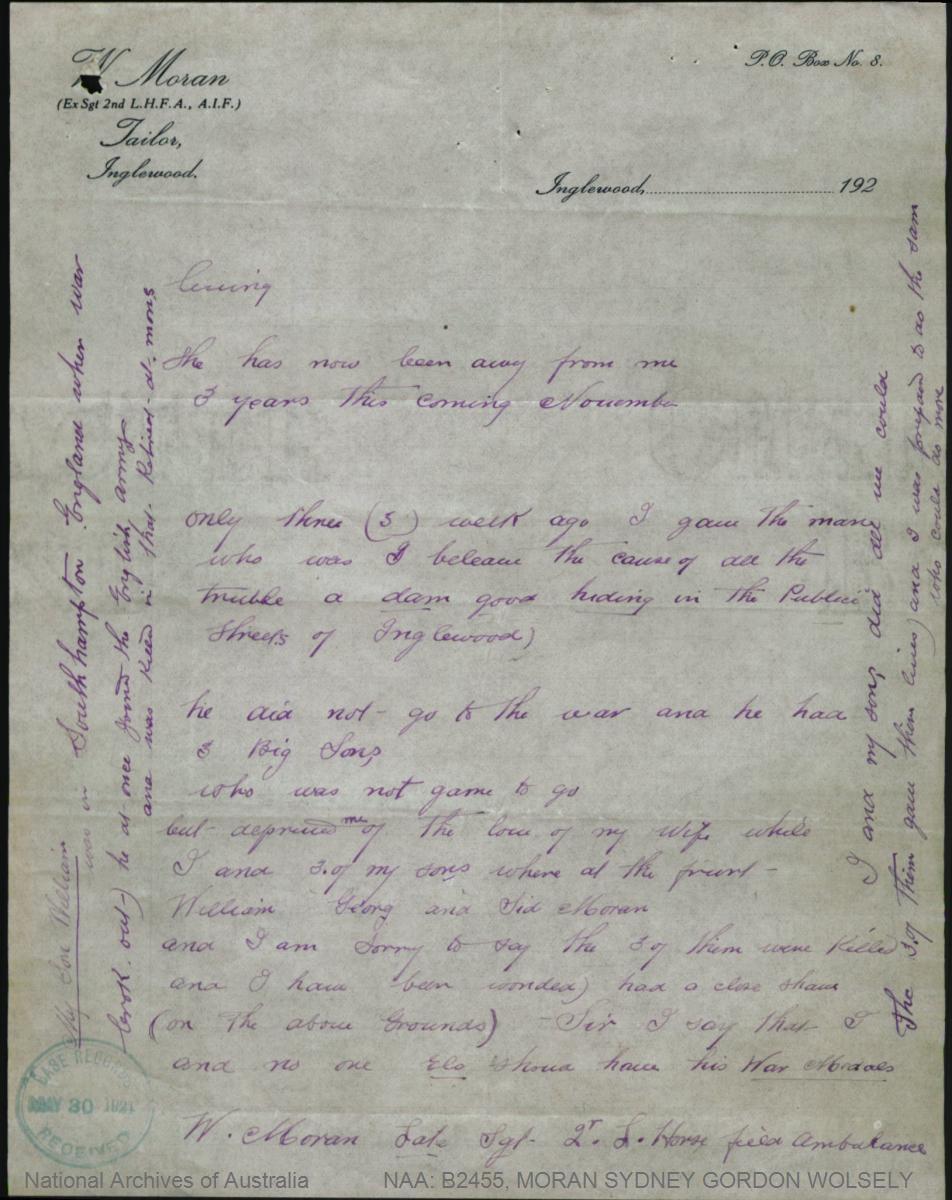 W Moran
(Ex Sgt 2nd L.H.F.A., A.I.F.)
Tailor,
Inglewood.
P.O. Box No. 8.
Inglewood, 192
living
She has now been away from me
3 years this coming November
only three (3) week ago I gave the man
who was I beleave the cause of all the
truble a dam good hiding in the Public
Streets of Inglewood)
he did not go to the war and he had
3 Big Sons
who was not game to go
but deprived me of the love of my wife while
I and 3 of my sons where at the frunt -
William Georg and Sid Moran
and I am Sorry to say the 3 of them were Killed
and I have been wonded) had a close shave
(on the above Grounds) Sir I say that I
and no one Els shoud have his War Medals
W. Moran Late Sgt 2r L. Horse field Ambulance
My Son William
was in Southhampton England when war
brok out) he at once joined the English army
and was killed in that Retreat at mons
I and my sons did all we could
The 3 of them gave them lives) and I was prepared to do the sam
who could do more
BASE RECORDS
MAY 30 1921
RECEIVED
National Archives of Australia
NAA: B2455, MORAN SYDNEY GORDON WOLSELY